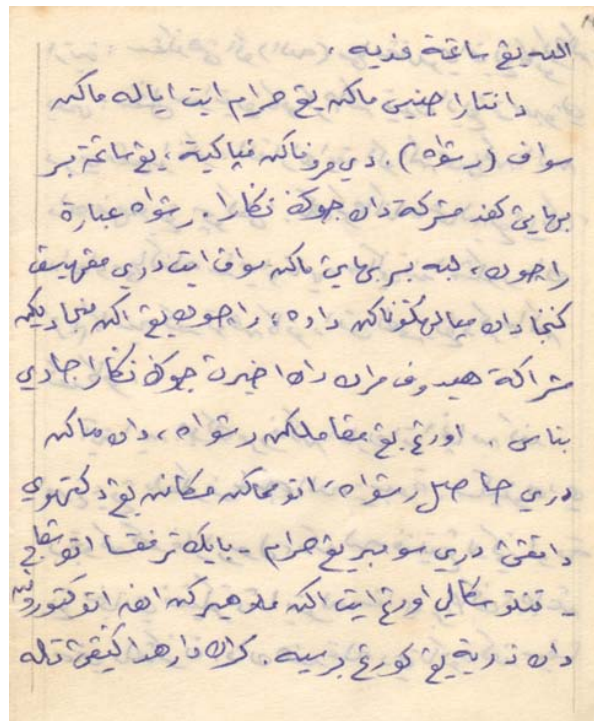 الله يڠ ساڠة فديه .
دانتارا جنيس ماكن يڠ حرام ايت اياله ماكن
سواف (رشواه) . دي مروفاكن فياكية ، يڠ ساڠة بر
بهاي كفد مشركة دان جوݢ نݢارا . رشواه عبارة
راچون ، لبه بربهاي ماكن سواف ايت دري مڠهيسف
ݢنجا دان ميالهݢوناكن داده ، راچون يڠ اكن منجاديكن
مشراكة هيدوف مراان دان اخيرڽ جوݢ نݢارا جادي
بناس . اورڠ يڠ مڠاملكن رشواه ، دان ماكن
دري حاصل رشواه ، اتو مماكن مكانن يڠ دكتهوي
داتڠڽ دري سومبر يڠ حرام - باݢي ترفقسا اتو
تنتو سكالي اورڠ ايت اكن ملاهيركن انق اتو كتورونن
دان ذرية يڠ كورڠ برسيه . كران دارهدا ݢيڠڽ تله